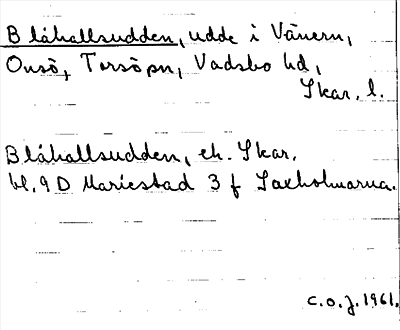 Blåhallsudden, udde i Vänern,
Onsö, Torsö sn, Vadsbo hd,
Skar. l.
Blåhallsudden, ek. Skar.
bl. 9D Mariestad 3 f Laxholmarna.
C.O.J. 1961.